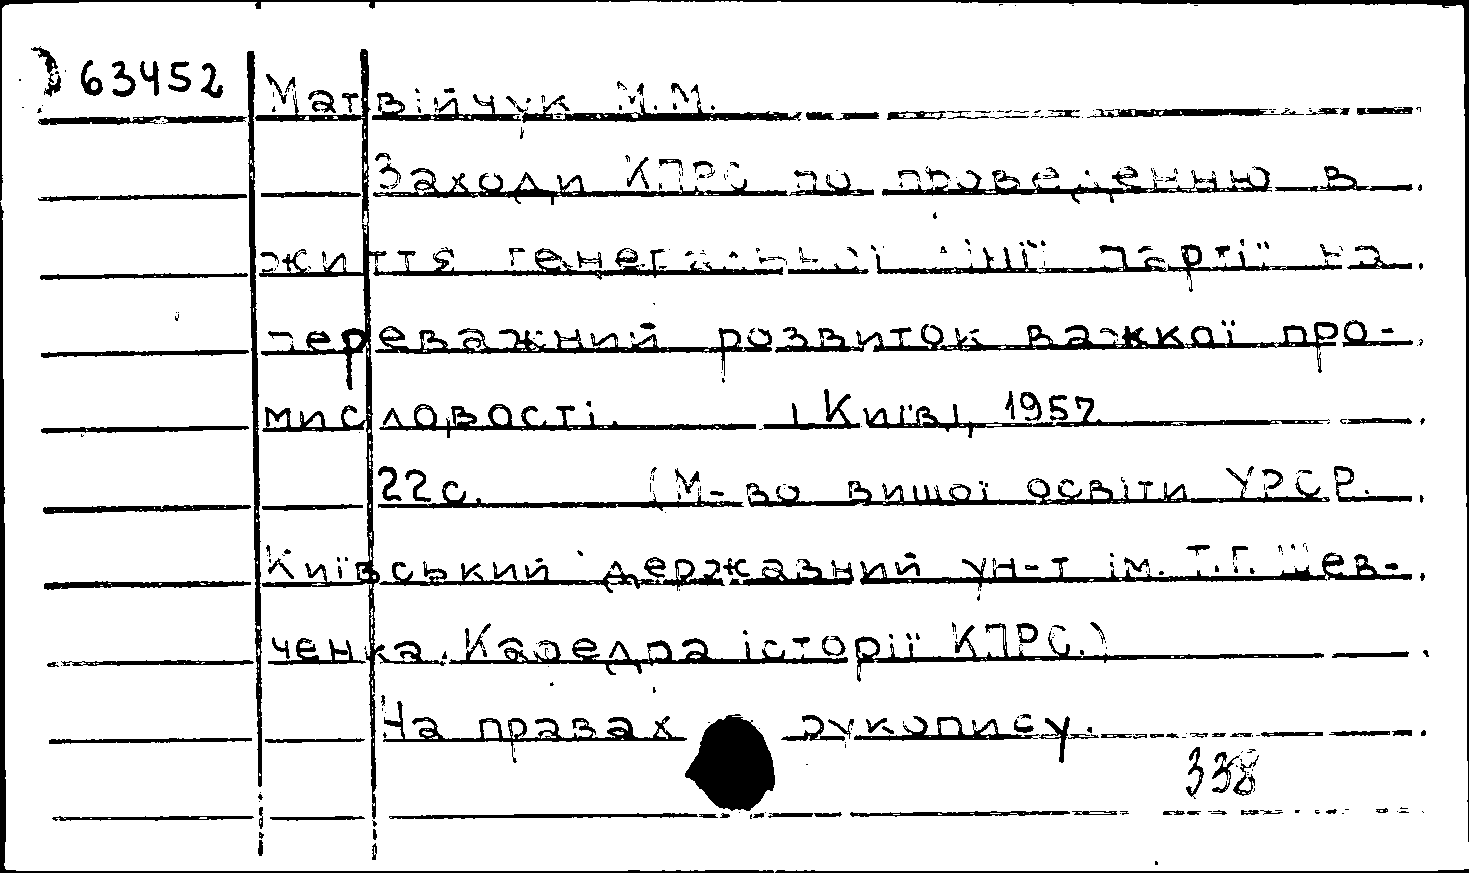 63452 Матвійчук М.М.
Заходи КПРС по проведенню в
життя генеральної лінії партії на
переважний розвиток важкої про-
мисловості. [Київ], 1957.
22с. (М-во вищої освіти УРСР.
Київський державний ун-т ім. Т.Г. Шев-
ченка. Кафедра історії КПРС.)
На правах рукопису.
338